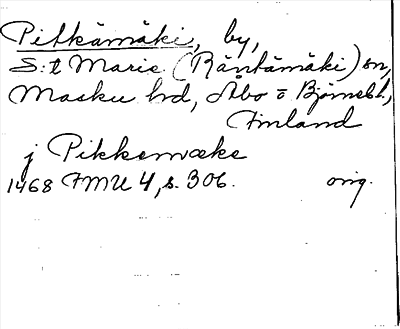 Pitkämäki, by,
S:t Marie (Räntämäki) sn,
Masku hd, Åbo o Björneb l,
Finland
j Pikkemæke
1468 FMU 4, s. 306. orig.